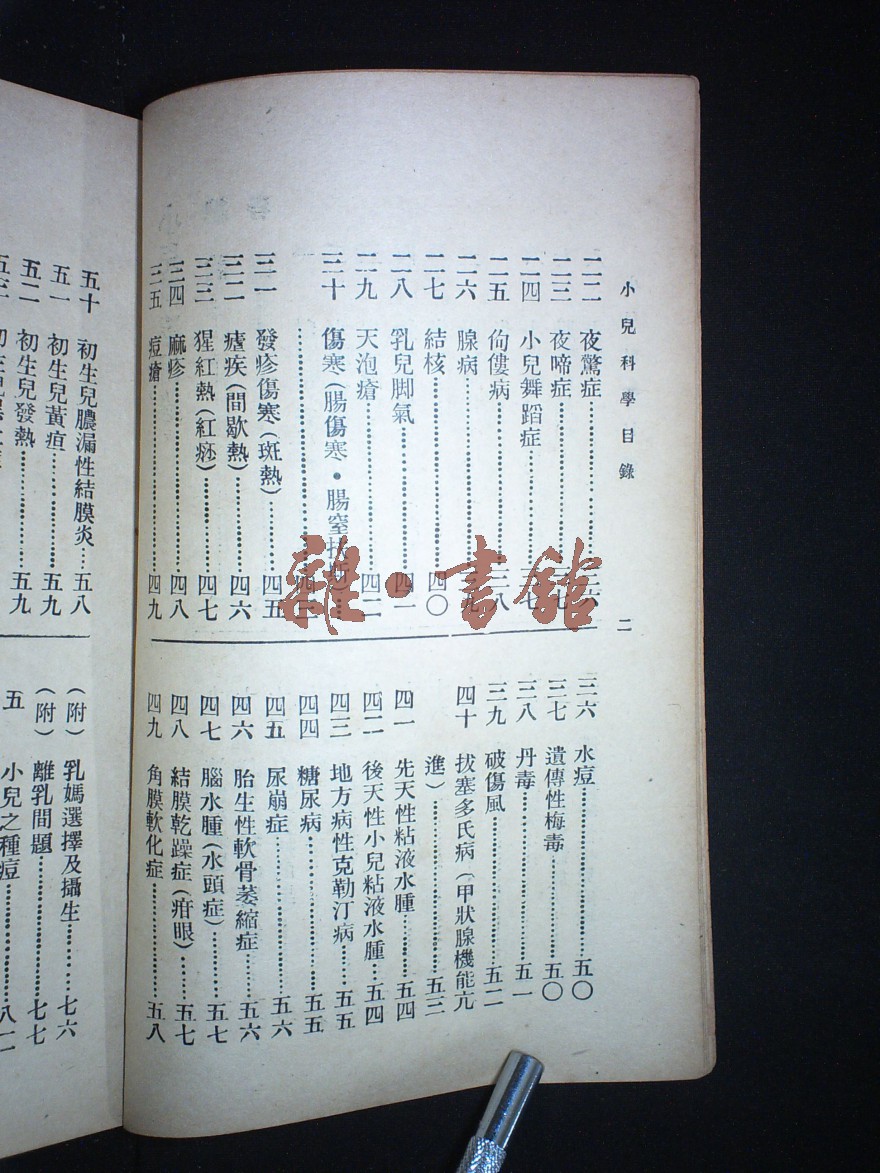 小兒科學目錄
二
二二 夜驚症……三六
二三 夜啼症
二四 小兒舞蹈症……三七
二五 佝僂病……三八
二六 腺病
二七 結核……四〇
二八 乳兒脚氣……四一
二九 天泡瘡……四二
三十 傷寒(腸傷寒・腸窒扶斯)……
……四三
三一 發疹傷寒(斑熱)……四五
三二 瘧疾(間歇熱)……四六
三三 猩紅熱(紅痧)……四七
三四 麻疹……四八
三五 痘瘡……四九
三六 水痘……五〇
三七 遺傳性梅毒……五〇
三八 丹毒……五一
三九 破傷風……五二
四十 拔塞多氏病(甲狀腺機能亢
進)……五三
四一 先天性粘液水腫……五四
四二 後天性小兒粘液水腫……五四
四三 地方病性克勒汀病……五五
四四 糖尿病……五五
四五 尿崩症……五六
四六 胎生性軟骨萎縮症……五六
四七 腦水腫(水頭症)……五七
四八 結膜乾躁症(疳眼)……五七
四九 角膜軟化症……五八
五十 初生兒膿漏性結膜炎……五八
五一 初生兒黃疸……五九
五二 初生兒發熱……五九
(附) 乳媽選擇及攝生……七六
(附) 離乳問題……七七
五 小兒之種痘……八一
龍・書館